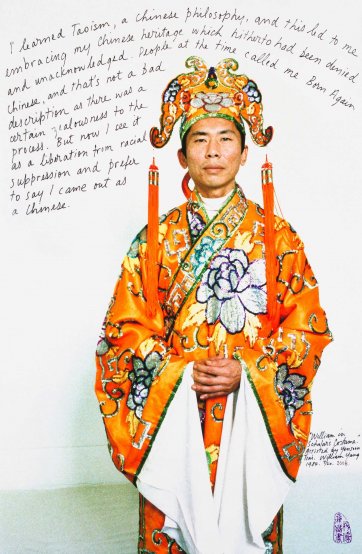 I learned Taoism, a Chinese philosophy, and this led to me
embracing my Chinese heritage which hitherto had been denied
and unacknowledged. People at the time called me Born Again
Chinese, and that's not a bad
description as there was a
certain zealousness to the
process. But now I see it
as a liberation from racial
suppression and prefer
to say I came out as
a Chinese.
"William in
Scholars Costume."
Assisted by Yensoon
Tsai. William Yang
1984. Ptr. 2016.